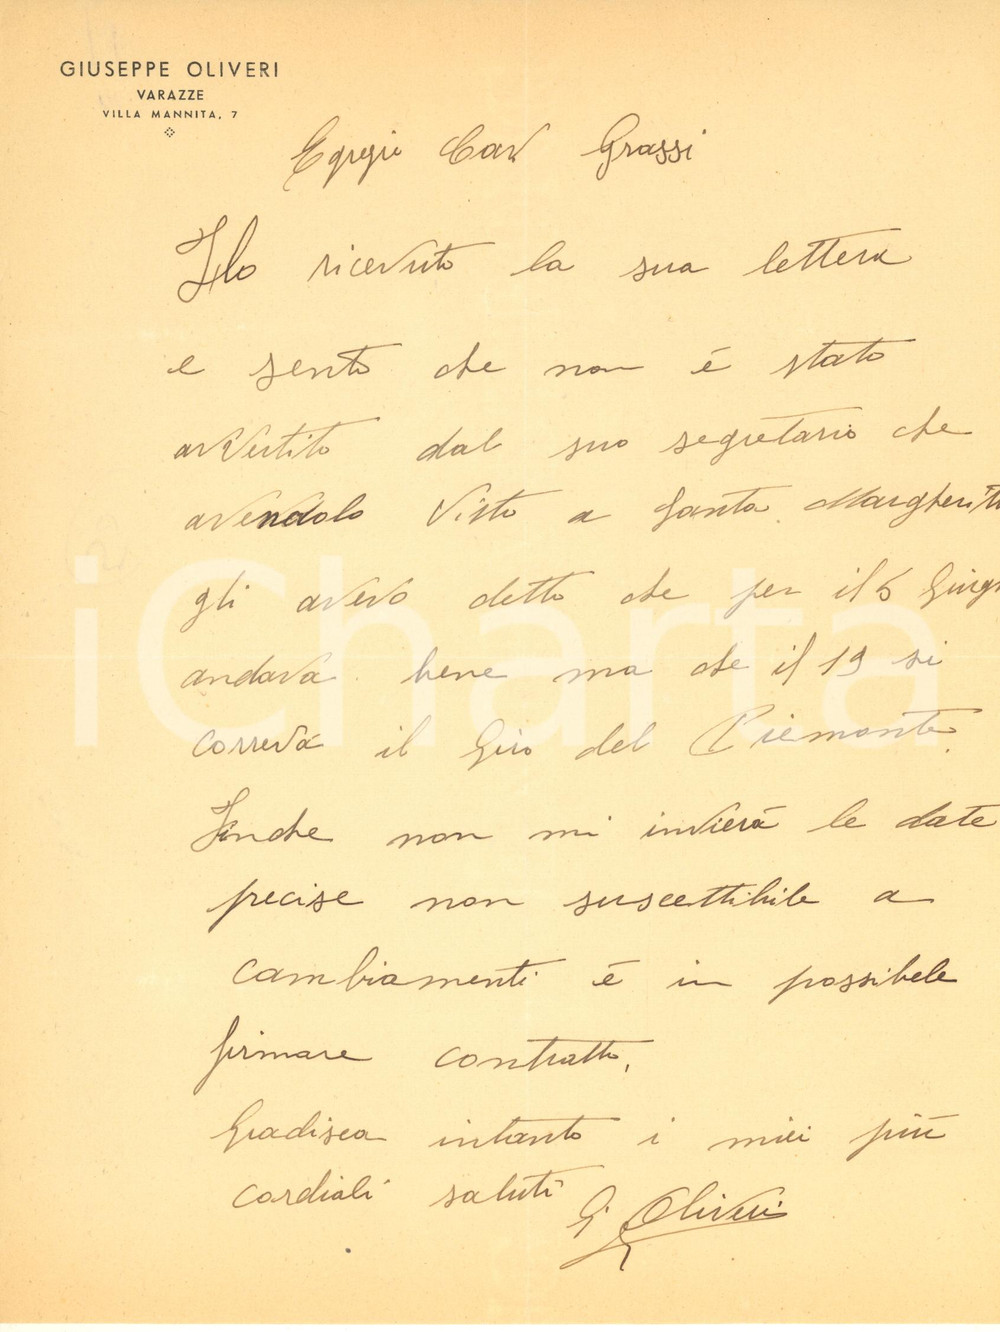 GIUSEPPE OLIVERI
VARAZZE
VILLA MANNITA, 7
Egregio Cav Grassi
Ho ricevuto la sua lettera
e sento che non è stato
avvertito dal suo segretario che
avendolo visto a Santa Margherita
gli avevo detto che per il 6 Giugn
andava bene ma che il 19 si
correva il Giro del Piemonte.
Finche non mi invierà le date
precise non suscettibile a
cambiamenti è in possibele
firmare contratto.
Gradisca intanto i miei più
cordiali saluti
G. Oliveri
iCharta